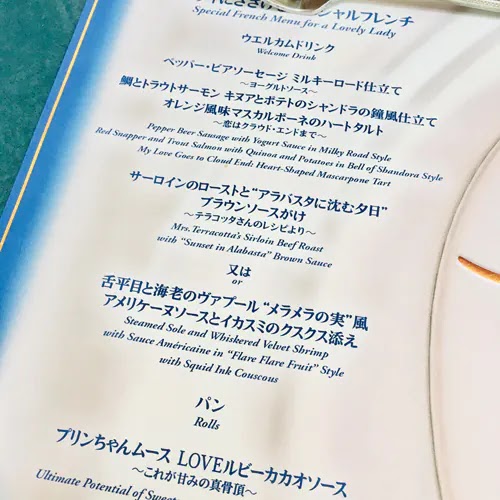 Special French Menu for a Lovely Lady
ウエルカムドリンク
Welcome Drink
ペッパー・ビアソーセージ ミルキーロード仕立て
〜ヨーグルトソース〜
鯛とトラウトサーモン キヌアとポテトのシャンドラの鐘風仕立て
オレンジ風味マスカルポーネのハートタルト
〜恋はクラウド・エンドまで〜
Pepper Beer Sausage with Yogurt Sauce in Milky Road Style
Red Snapper and Trout Salmon with Quinoa and Potatoes in Bell of Shandora Style
My Love Goes to Cloud End: Heart-Shaped Mascarpone Tart
サーロインのローストと“アラバスタに沈む夕日”
ブラウンソースがけ
〜テラコッタさんのレシピより〜
Mrs. Terracotta's Sirloin Beef Roast
with “Sunset in Alabasta” Brown Sauce
又は
or
舌平目と海老のヴァプール “メラメラの実”風
アメリケーヌソースとイカスミのクスクス添え
Steamed Sole and Whiskered Velvet Shrimp
with Sauce Américaine in “Flare Flare Fruit” Style
with Squid Ink Couscous
パン
Rolls
プリンちゃんムース LOVEルビーカカオソース
〜これが甘みの真骨頂〜
Ultimate Potential of